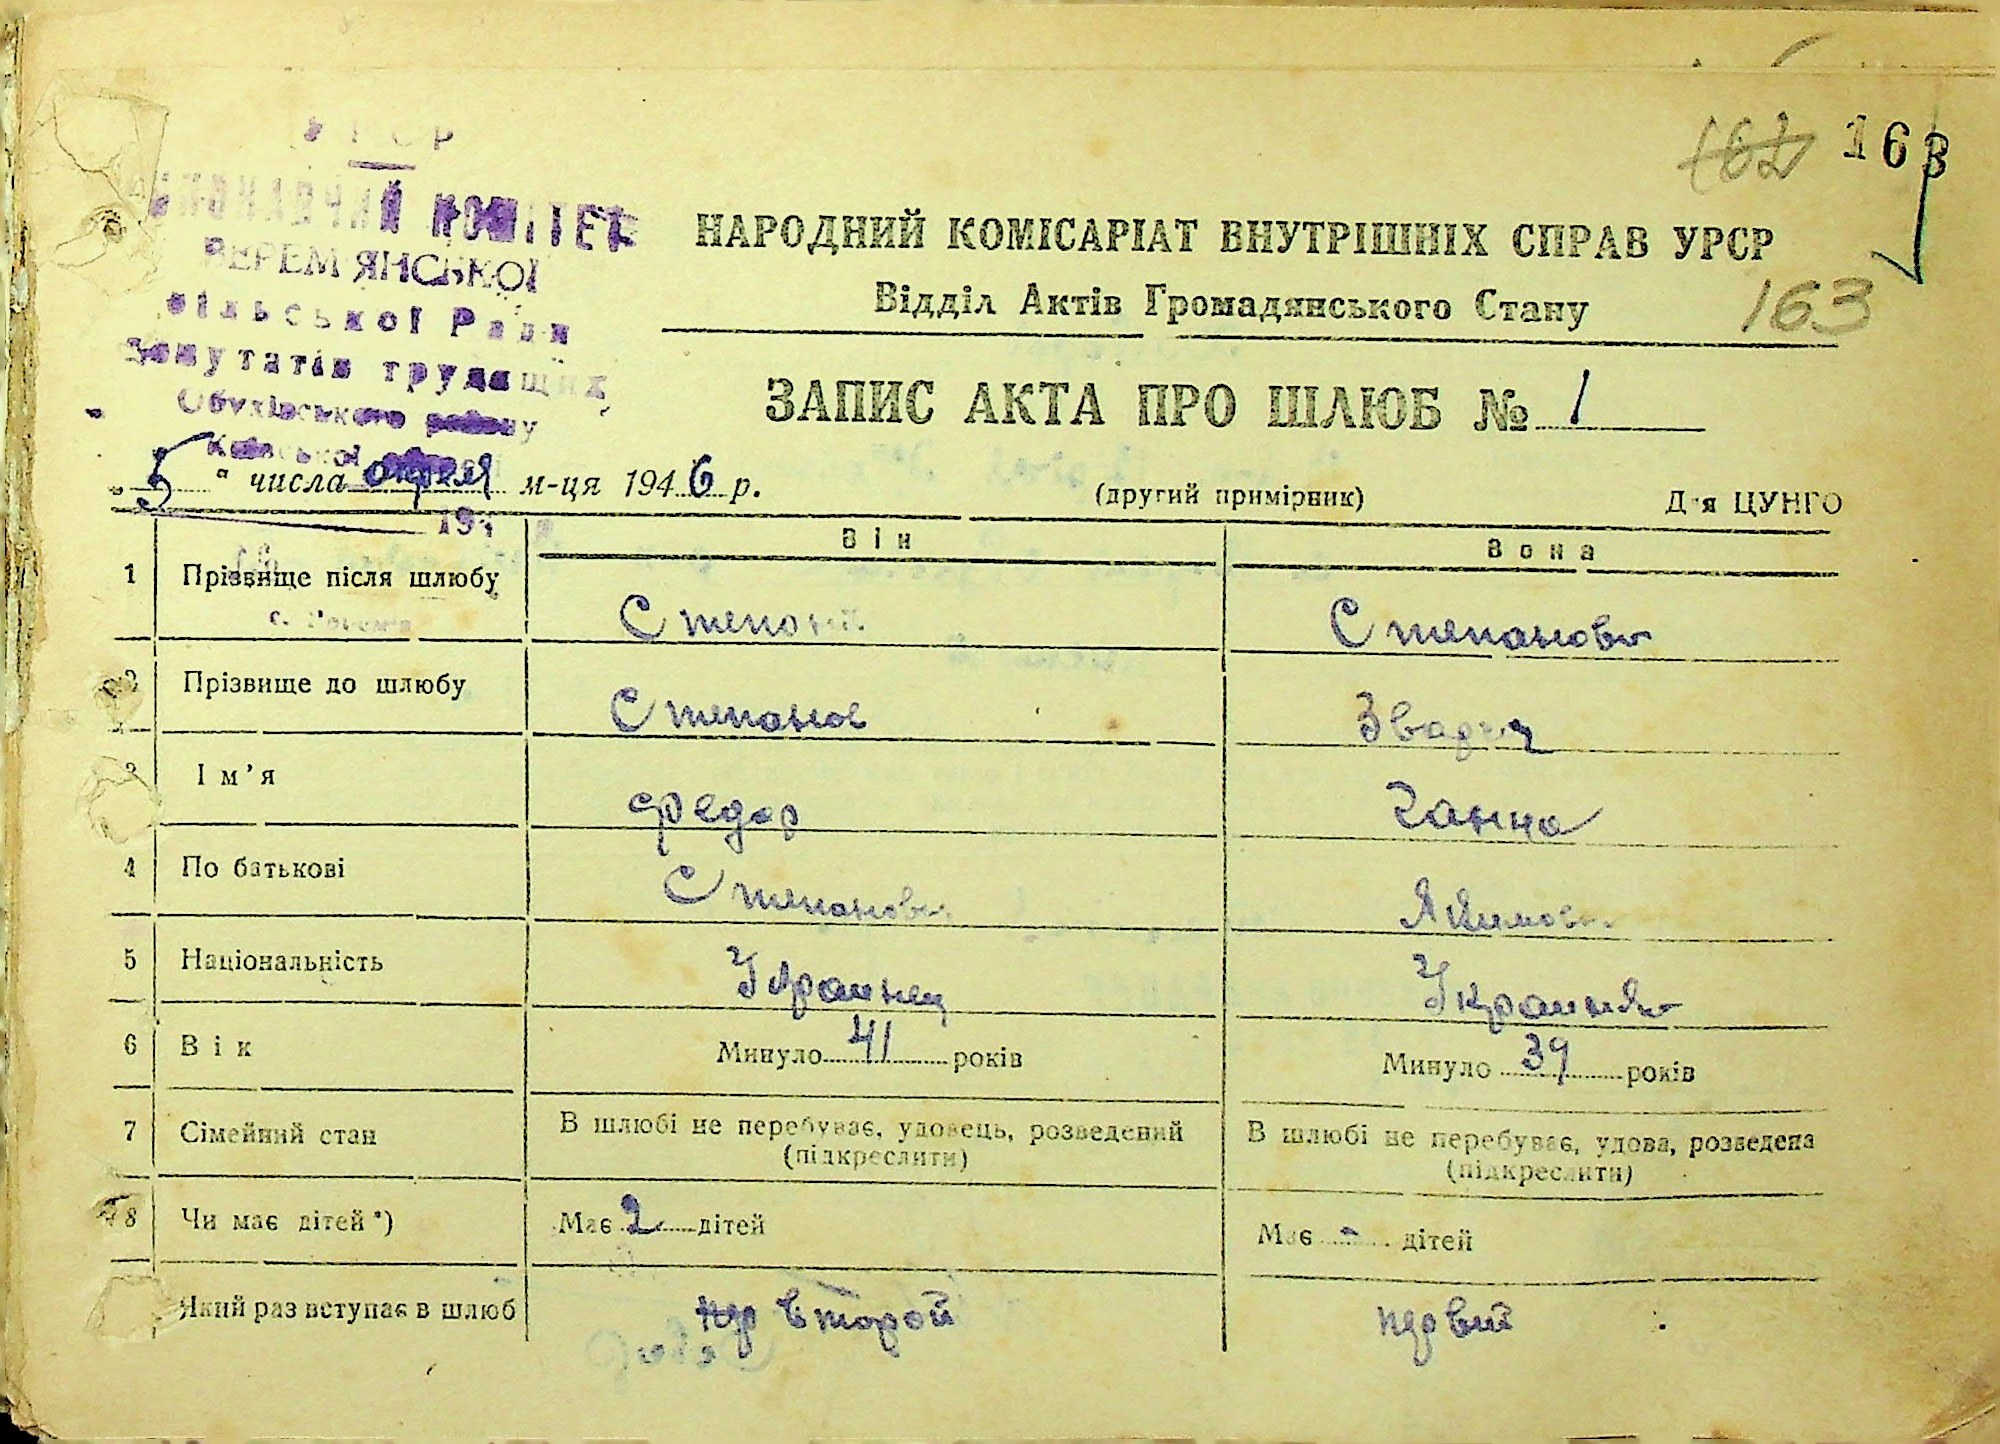 162 163
КОМІТЕТ
ВЕРЕМ'ЯНСЬКОЇ
сільської Ради
Депутатів трудящих
Обухівського району
Київської
НАРОДНИЙ КОМІСАРІАТ ВНУТРІШНІХ СПРАВ УРСР
Відділ Актів Громадянського Стану
163
ЗАПИС АКТА ПРО ШЛЮБ № 1
„5“ числа апреля м-ця 1946 р.
(другий примірник) Для ЦУНГО
194
Він Вона
1 Прізвище після шлюбу Степанов Степанова
2 Прізвище до шлюбу Степанов Зварич
3 Ім'я Федор Ганна
4 По батькові Степанович Якимовна
5 Національність Украинец Украинка
6 Вік Минуло 41 років Минуло 39 років
7 Сімейний стан В шлюбі не перебуває, удовець, розведений (підкреслити) В шлюбі не перебуває, удова, розведена (підкреслити)
8 Чи має дітей*) Має 2 дітей Має - дітей
Який раз вступає в шлюб второй первий